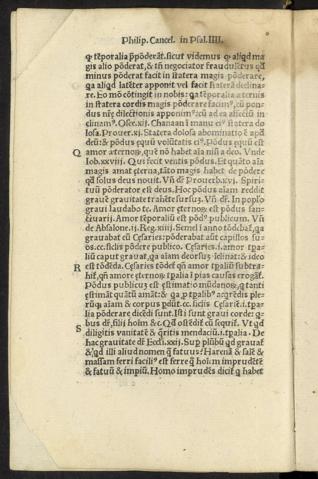 Philip. Cancel. in Psal. IIII.
q̄ tēporalia p̄pōderāt. sicut videmus q̄ aliqd ma
gis alio pōderat, & tñ negociator fraudulētus qđ
minus pōderat facit in statera magis pōderare,
qa aliqd latēter apponit vel facit staterā declina-
re. Eo mō cōtingit in nobis: qa tēporalia æternis
in statera cordis magis pōderare facimꝰ, cū pon-
dus nrę dilectionis apponimꝰ:
clinamꝰ. Osee. xij. Chanaan ī manu eiꝰ statera do
losa. Prouer. xj. Statera dolosa abominatio ē apđ
deū: & pōdus equū volūtatis eiꝰ. Pōdus equū est
Q amor æternoꝝ, quē nō habet aīa nisi a deo. Vnde
Iob. xxviii. Qui fecit ventis pōdus. Et quāto aīa
magis amat ęterna, tāto magis habet de pōdere
qđ solus deus nouit. Vñ dr̄ Prouerb. xvj. Spiri-
tuū pōderator est deus. Hoc pōdus aīam reddit
grauē grauitate trahēte sursuȝ. Vñ dr̄. In poplo
graui laudabo te. Amor ęternoꝝ est pōdus san-
ctuarij. Amor tēporaliū est pōdꝰ publicum. Vñ
de Absalone. ij. Reg. xiiij. Semel ī anno tōdebat, qa
grauabat eū Cęsaries: pōderabat aūt capillos su-
os. cc. siclis pōdere publico. Cęsaries. i. amor tpa-
liū caput grauat, qa aīam deorsuȝ īclinat: & ideo
R est tōdēda. Cęsaries tōdet qñ amor tpaliū subtra-
hit, qñ amor ęternoꝝ, tpalia ī pias causas erogāt.
Pōdus publicuȝ est ęstimatio mūdanoꝝ, q tanti
ęstimāt quātū amāt: & qa p tpalibꝰ acqrēdis ple-
rūq aīam & corpus pdūt. cc. siclis Cęsarie. i. tpa-
lia pōderare dicēdi sunt. Isti sunt graui corde: q-
bus dr̄, filij hoīm &c. Qđ ostēdit cū sequit̄. Vt qd
S diligitis vanitatē & q̄ritis mendaciū. i. tpalia. De
hac grauitate dr̄ Eccli. xxij. Sup plūbū qd grauat̄
& qd illi aliud nomen q̄ fatuus? Harenā & salē &
massam ferri faciliꝰ est ferre q̄ hoīm imprudētē
& fatuū & impiū. Homo imprudēs dicit̄ q habet